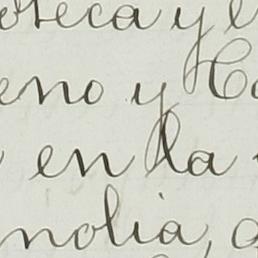 oteca y
eno y
en la
nolia,